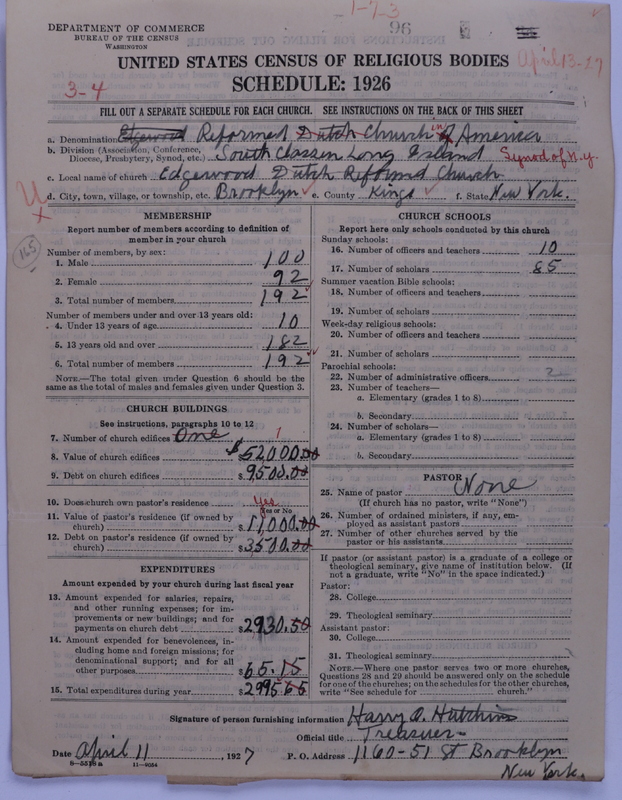 1-7-3
96
DEPARTMENT OF COMMERCE
BUREAU OF THE CENSUS
WASHINGTON
April 13-27
UNITED STATES CENSUS OF RELIGIOUS BODIES
SCHEDULE: 1926
3-4
FILL OUT A SEPARATE SCHEDULE FOR EACH CHURCH. SEE INSTRUCTIONS ON THE BACK OF THIS SHEET
a. Denomination Edgewood Reformed Dutch Church in America
b. Division (Association, Conference, Diocese, Presbytery, Synod, etc.) South Classen Long Island Synod of N.Y.
c. Local name of church Edgerwood Dutch Reformed Church
d. City, town, village, or township, etc. Brooklyn e. County Kings f. State New York.
165
MEMBERSHIP
Report number of members according to definition of
member in your church
Number of members, by sex:
1. Male 100
2. Female 92
3. Total number of members 192
Number of members under and over 13 years old:
4. Under 13 years of age 10
5. 13 years old and over 182
6. Total number of members 192
NOTE.—The total given under Question 6 should be the
same as the total of males and females given under Question 3.
CHURCH BUILDINGS
See instructions, paragraphs 10 to 12
7. Number of church edifices One 1
8. Value of church edifices $52000.00
9. Debt on church edifices $9500.00
10. Does church own pastor's residence Yes
Yes or No
11. Value of pastor's residence (if owned by
church) $11,000.00
12. Debt on pastor's residence (if owned by
church) $3500.00
EXPENDITURES
Amount expended by your church during last fiscal year
13. Amount expended for salaries, repairs,
and other running expenses; for im-
provements or new buildings; and for
payments on church debt $2930.50
14. Amount expended for benevolences, in-
cluding home and foreign missions; for
denominational support; and for all
other purposes $65.15
15. Total expenditures during year $2995.65
CHURCH SCHOOLS
Report here only schools conducted by this church
Sunday schools:
16. Number of officers and teachers 10
17. Number of scholars 85
Summer vacation Bible schools:
18. Number of officers and teachers
19. Number of scholars
Week-day religious schools:
20. Number of officers and teachers
21. Number of scholars
Parochial schools:
22. Number of administrative officers 2
23. Number of teachers—
a. Elementary (grades 1 to 8)
b. Secondary
24. Number of scholars—
a. Elementary (grades 1 to 8)
b. Secondary
PASTOR
25. Name of pastor None
(If church has no pastor, write "None")
26. Number of ordained ministers, if any, em-
ployed as assistant pastors
27. Number of other churches served by the
pastor or his assistants
If pastor (or assistant pastor) is a graduate of a college or
theological seminary, give name of institution below. (If
not a graduate, write "No" in the space indicated.)
Pastor:
28. College
29. Theological seminary
Assistant pastor:
30. College
31. Theological seminary
NOTE.—Where one pastor serves two or more churches,
Questions 28 and 29 should be answered only on the schedule
for one of the churches; on the schedules for the other churches,
write "See schedule for church."
Signature of person furnishing information Harry A. Hutchins
Official title Treasurer
Date April 11, 1927 P. O. Address 1160-51 St Brooklyn
New York.
8-5518a 11-9084